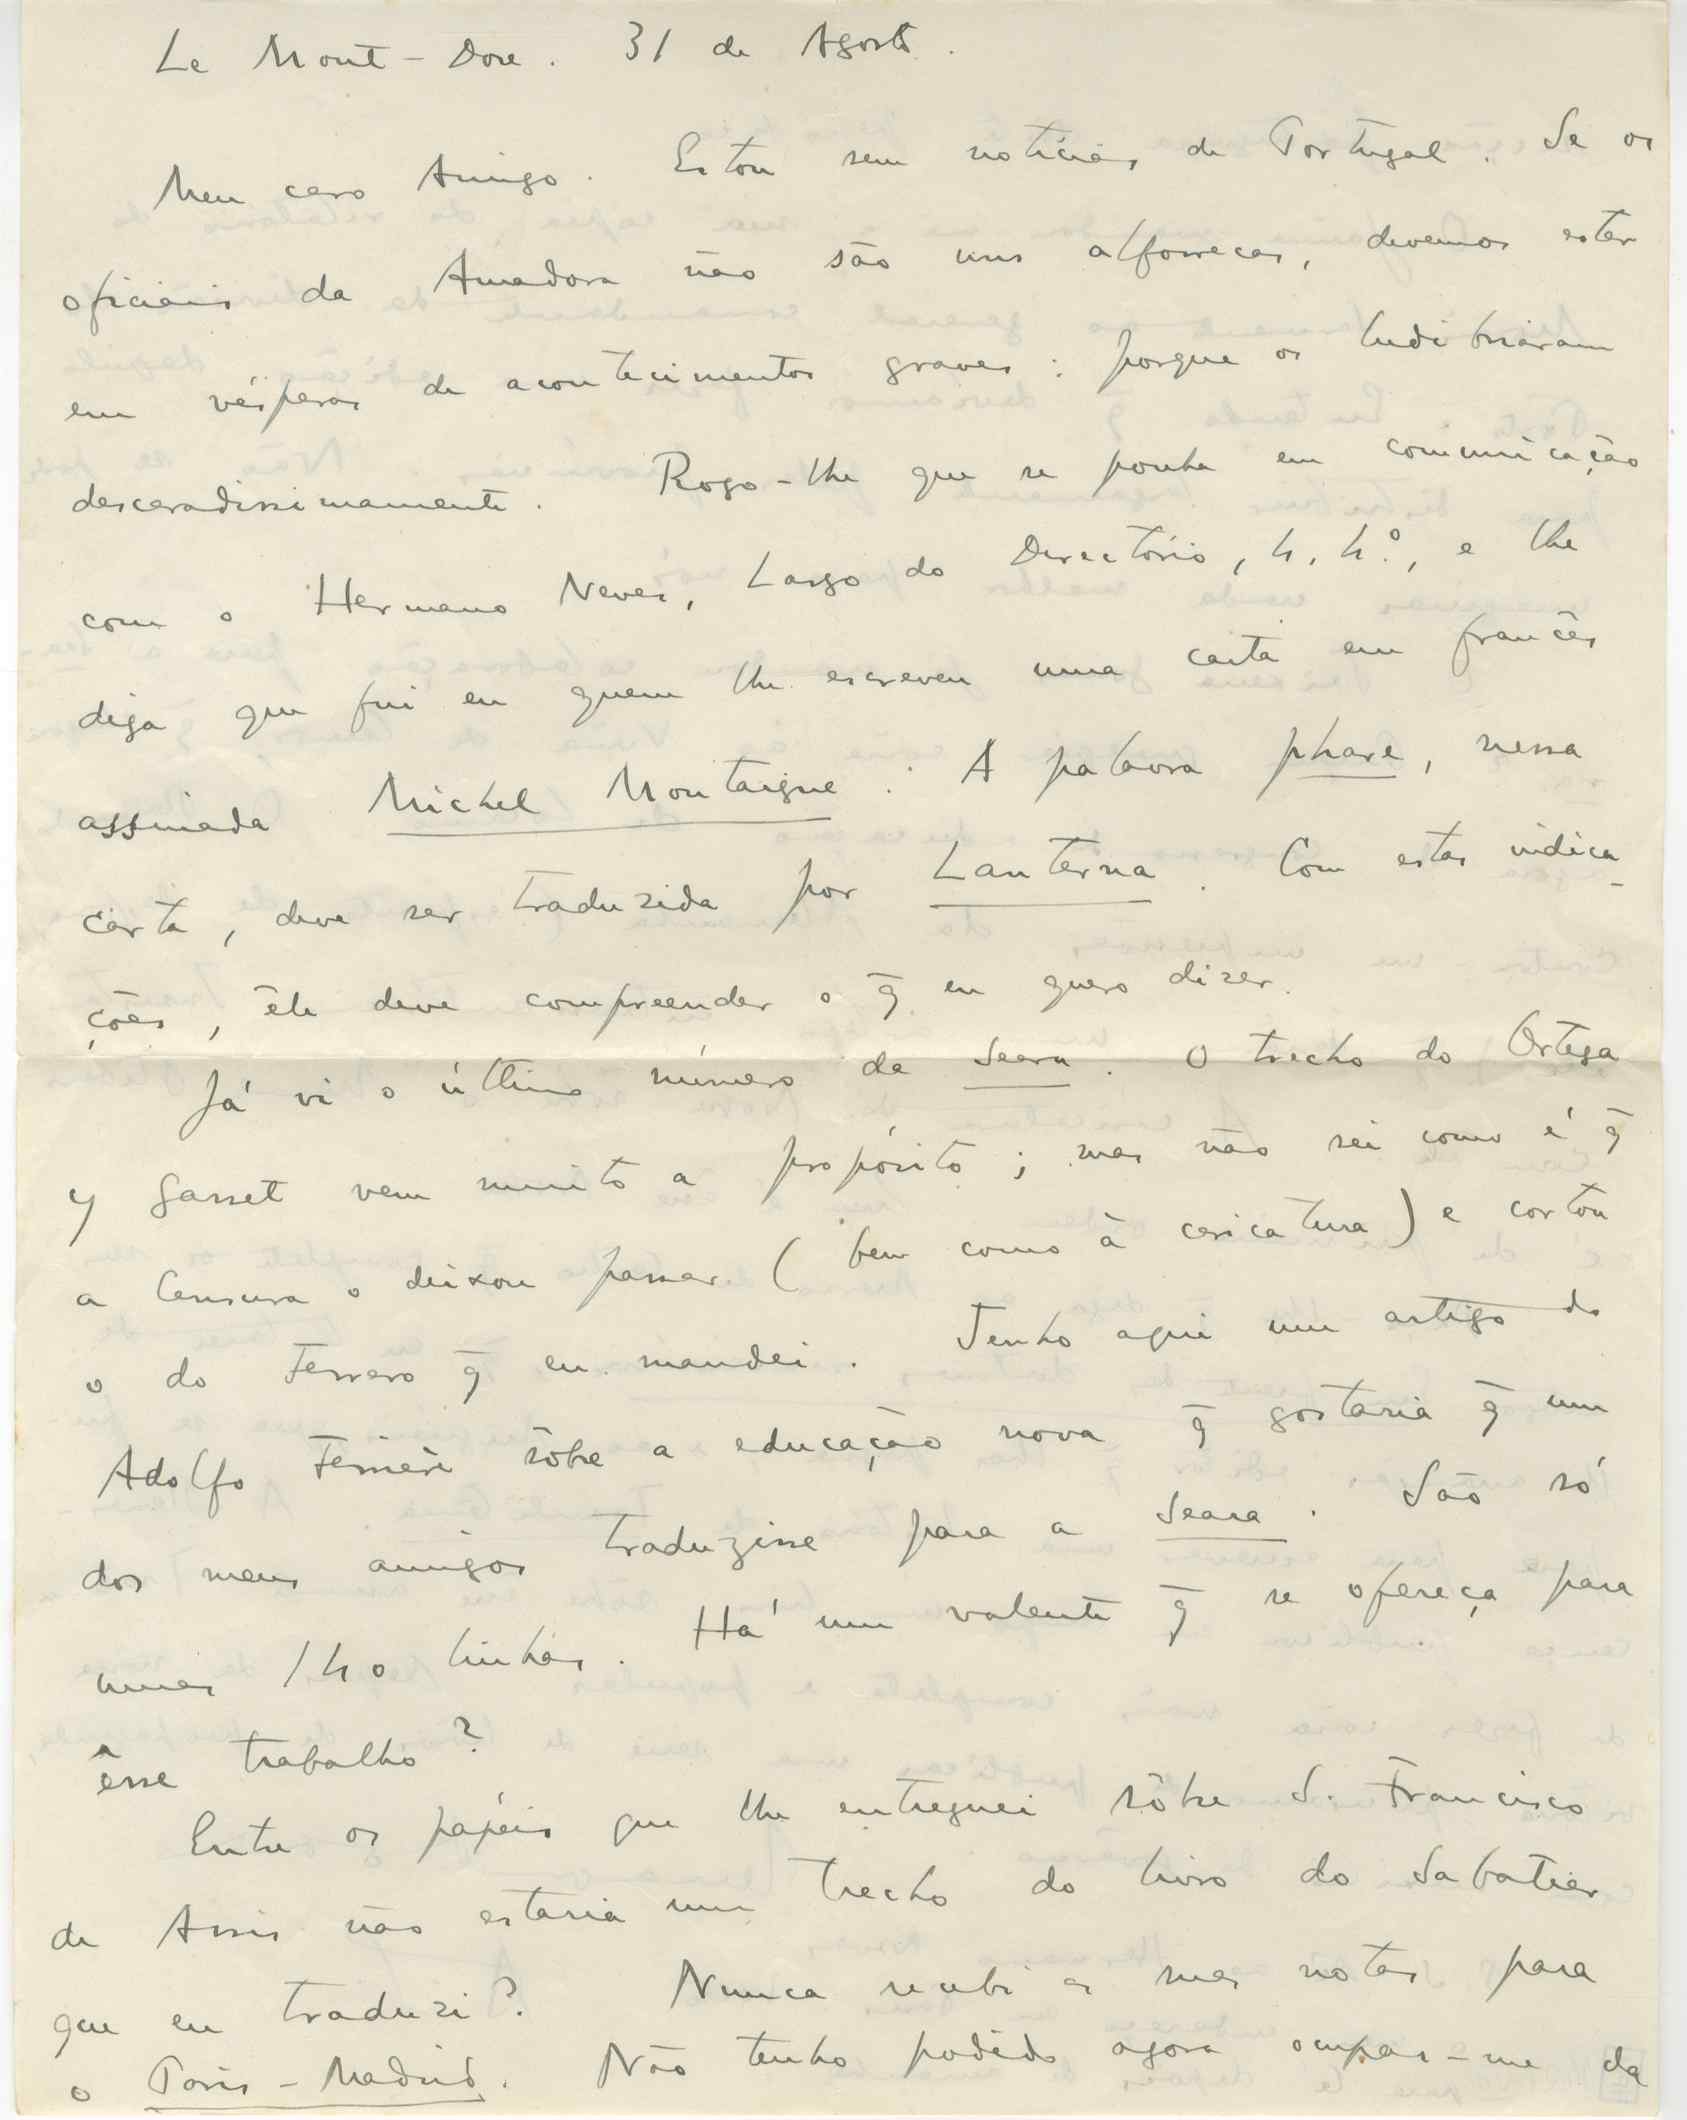 Le Mont-Dore. 31 de Agosto.
Meu caro Amigo. Estou sem notícias de Portugal. Se os
oficiais da Amadora não são uns alforrecas, devemos estar
em vésperas de acontecimentos graves: porque os ludibriaram
descaradissimamente. Rogo-lhe que se ponha em comunicação
com o Hermano Neves, Largo do Directório, 4, 4º, e lhe
diga que fui eu quem lhe escreveu uma carta em francês
assinada Michel Montaigne. A palavra phare, nessa
carta, deve ser traduzida por Lanterna. Com estas indica-
ções, êle deve compreender o q̄ eu quero dizer.
Já vi o último número da Seara. O trecho do Ortega
y Gasset vem muito a propósito; mas não sei como é q̄
a Censura o deixou passar (bem como à caricatura) e cortou
o do Ferrero q̄ eu mandei. Tenho aqui um artigo do
Adolfo Ferrière sôbre a educação nova q̄ gostaria q̄ um
dos meus amigos traduzisse para a Seara. São só
umas 140 linhas. Há um valente q̄ se ofereça para
êsse trabalho?
Entre os papéis que lhe entreguei sôbre S. Francisco
de Assis não estaria um trecho do livro do Sabatier
que eu traduzi? Nunca recebi as suas notas para
o Paris-Madrid. Não tenho podido agora ocupar-me da